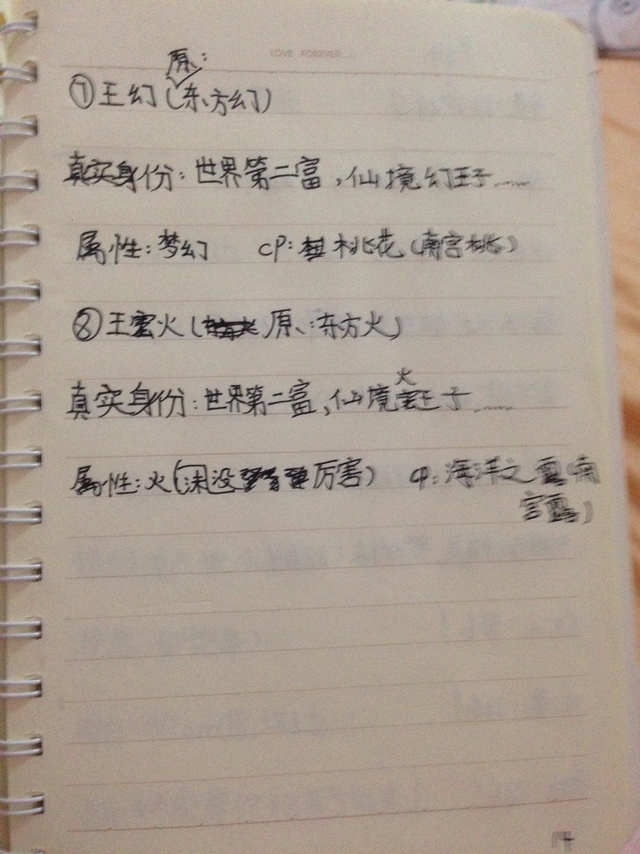 LOVE FOREVER...
⑦王幻(原:东方幻)
真实身份:世界第二富,仙境幻王子......
属性:梦幻 CP:桃花(南宫桃)
⑧王火(原:东方火)
真实身份:世界第二富,仙境火王子......
属性:火(没厉害) CP:海洋之露(南
宫露)
14